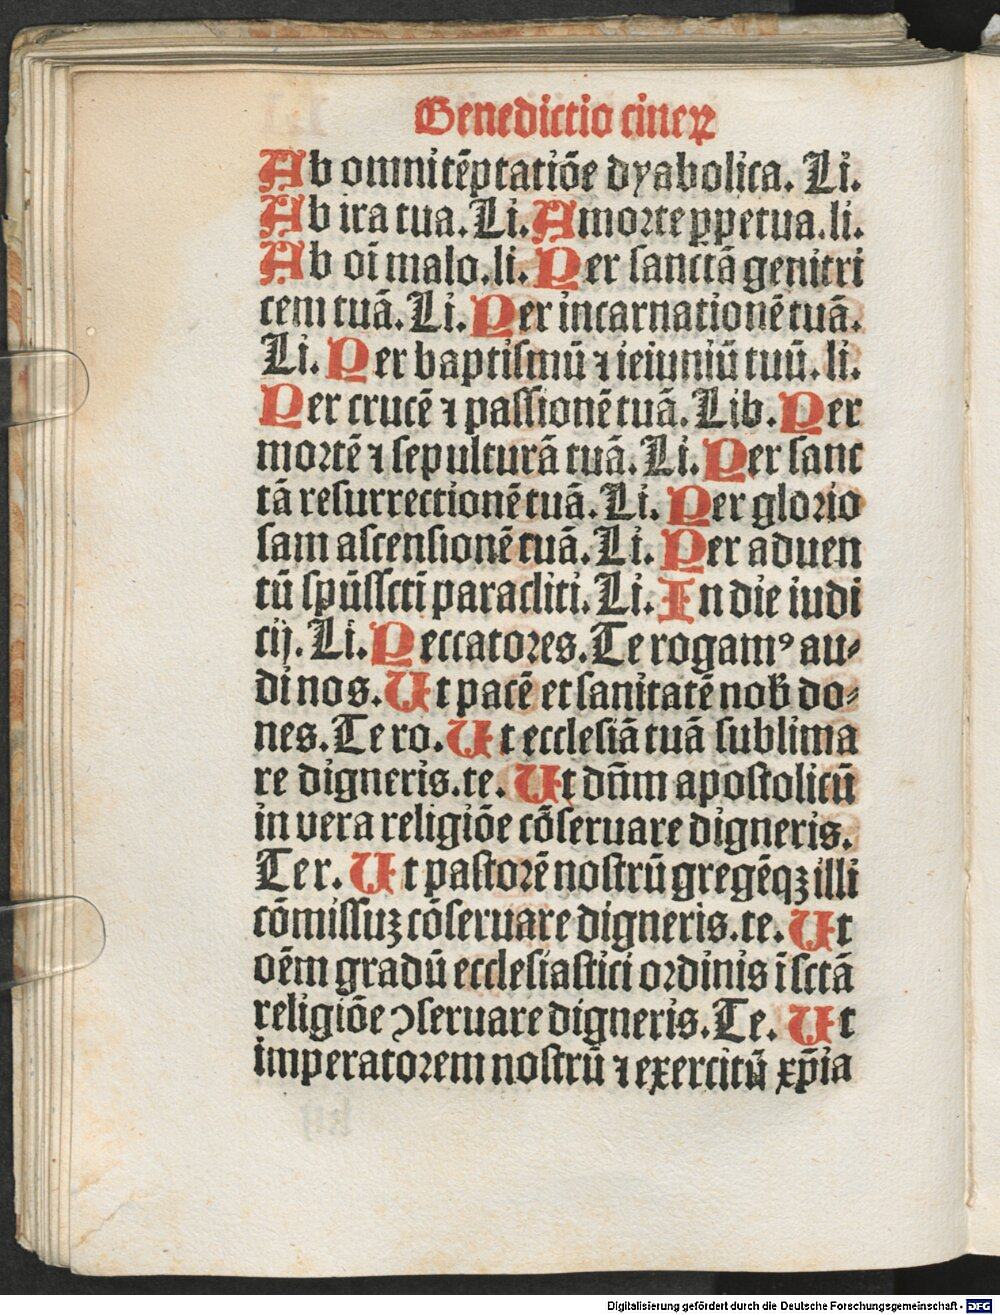 Benedictio cineꝝ
Ab omni tēptatiōe dyabolica. Li.
Ab ira tua. Li. A morte ꝑpetua. li.
Ab oī malo. li. Per sanctā genitri
cem tuā. Li. Per incarnationē tuā.
Li. Per baptismū ⁊ ieiuniū tuū. li.
Per crucē ⁊ passionē tuā. Lib. Per
mortē ⁊ sepulturā tuā. Li. Per sanc
tā resurrectionē tuā. Li. Per glorio
sam ascensionē tuā. Li. Per aduen
tū sp̄ūssctī paracliti. Li. In die iudi
cij. Li. Peccatores. Te rogamꝰ au⸗
di nos. Ut pacē et sanitatē nob̄ do⸗
nes. Te ro. Ut ecclesiā tuā sublima
re digneris. te. Ut dn̄m apostolicū
in vera religiōe cōseruare digneris.
Te r. Ut pastorē nostrū gregēqꝫ illi
cōmissuꝫ cōseruare digneris. te. Ut
oēm gradū ecclesiastici ordinis ī sctā
religiōe ꝯseruare digneris. Te. Ut
imperatorem nostrū ⁊ exercitū xp̄ia
Digitalisierung gefördert durch die Deutsche Forschungsgemeinschaft - DFG